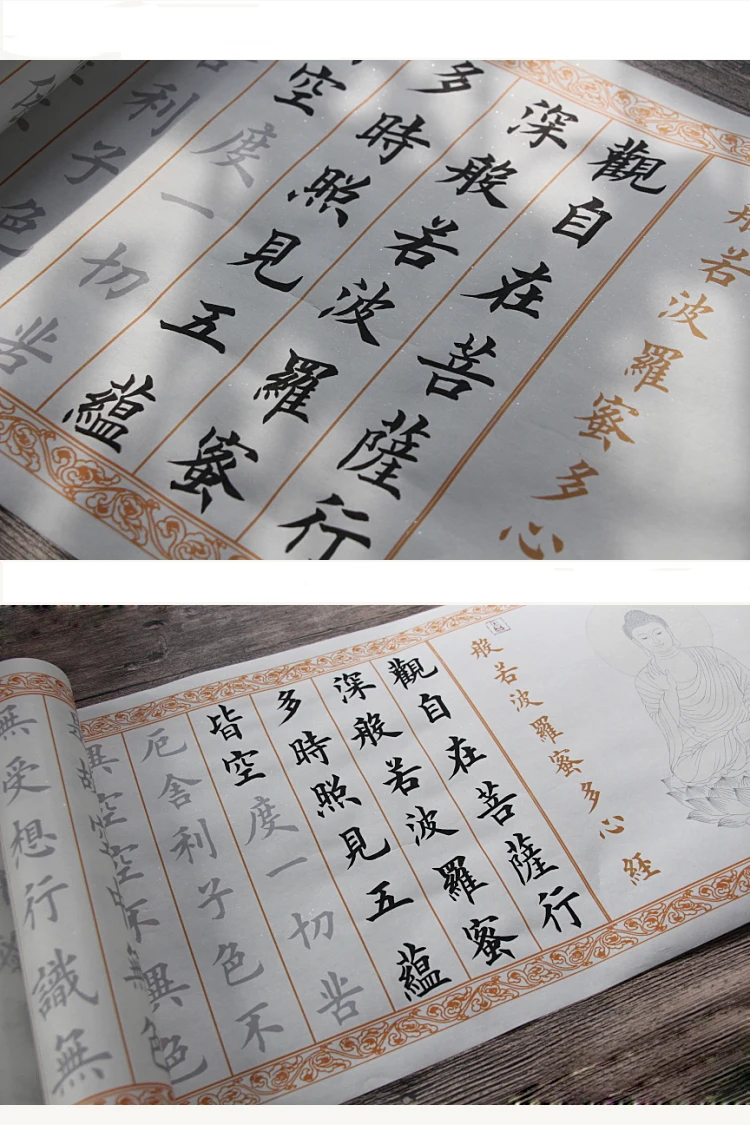 般若波羅蜜多心
觀自在菩薩行
深般若波羅蜜
多時照見五蘊
空度一切苦
利子色
般若波羅蜜多心經
觀自在菩薩行
深般若波羅蜜
多時照見五蘊
皆空度一切苦
厄舍利子色不
異空空不異色
無受想行識無